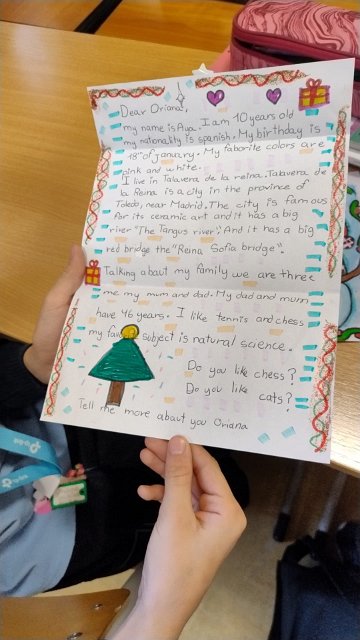 Dear Oriana,
my name is Aya. I am 10 years old
my nationality is spanish. My birthday is
18th of January. My faborite colors are
pink and white.
I live in Talavera de la reina. Talavera de
la Reina is a city in the province of
Toledo, near Madrid. The city is famous
for its ceramic art and it has a big
river "The Tangus river". And it has a big
red bridge the "Reina Sofia bridge".
Talking about my family we are three
me, my mum and dad. My dad and mum
have 46 years. I like tennis and chess
my subject is natural science.
Do you like chess?
Do you like cats?
Tell me more about you Oriana